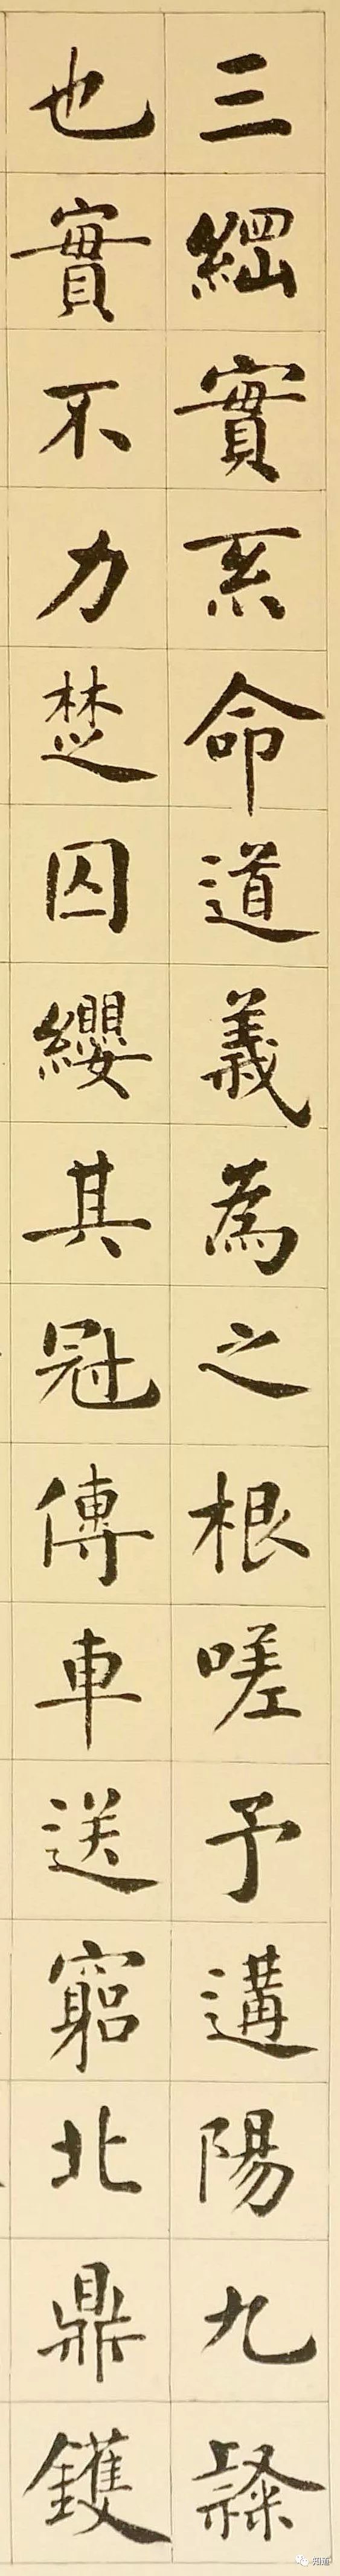 三綱實系命道義為之根嗟予遘陽九隸
也實不力楚囚纓其冠傳車送窮北鼎鑊